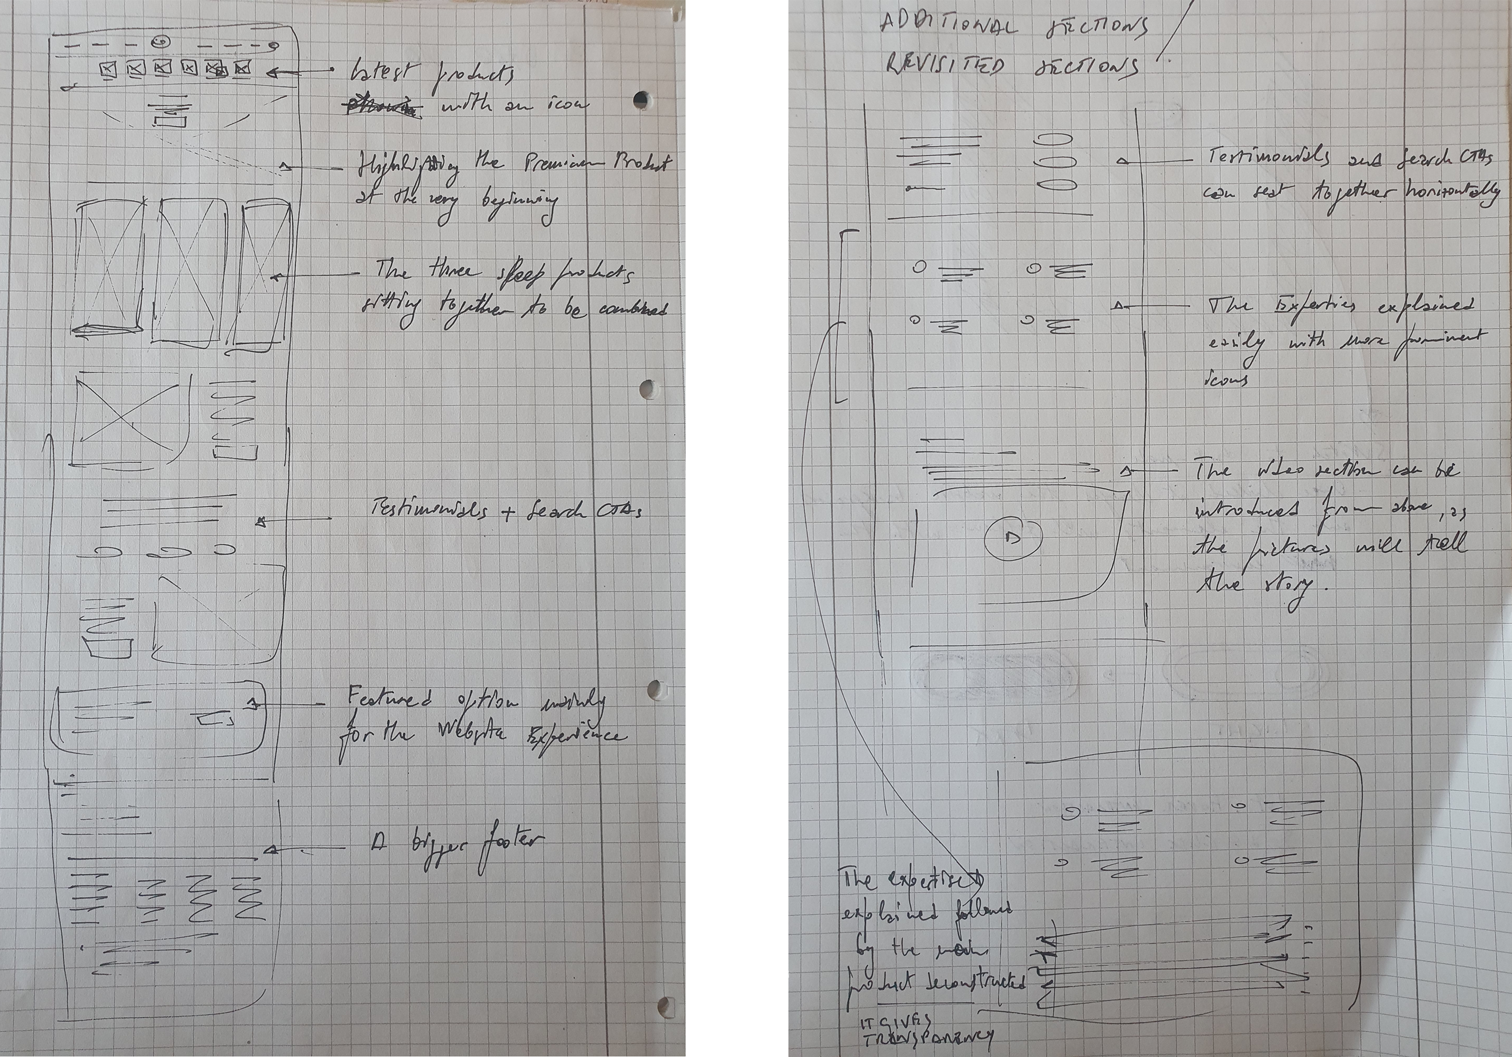 Latest products
with an icon
Highlighting the Premium Product
at the very beginning
The three sleep products
sitting together to be combined
Testimonials + Search CTAs
Featured option mainly
for the Website Experience
A bigger footer
ADDITIONAL SECTIONS /
REVISITED SECTIONS
Testimonials and Search CTAs
can seat together horizontally
The Experties explained
easily with more prominent
icons
The video section can be
introduced from above, as
the pictures will tell
the story.
The expertise
explained followed
by the main
product deconstructed
IT GIVES
TRANSPARENCY